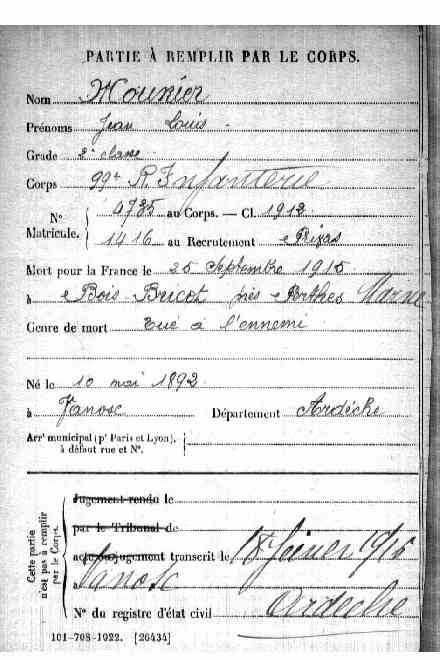 PARTIE À REMPLIR PAR LE CORPS.
Nom Mounier
Prénoms Jean Louis
Grade 2e classe
Corps 99e R. Infanterie
N° Matricule. 0735 au Corps. — Cl. 1912
1416 au Recrutement Privas
Mort pour la France le 25 Septembre 1915
à Bois-Bricot près Perthes Marne
Genre de mort Tué à l'ennemi
Né le 10 mai 1892
à Vanosc Département Ardèche
Arrt municipal (pr Paris et Lyon), à défaut rue et N°.
Cette partie n'est pas à remplir par le Corps.
Jugement rendu le
par le Tribunal de
acte ou jugement transcrit le 18 février 1916
à Vanosc
Ardèche
N° du registre d'état civil
101-708-1922. [26434]